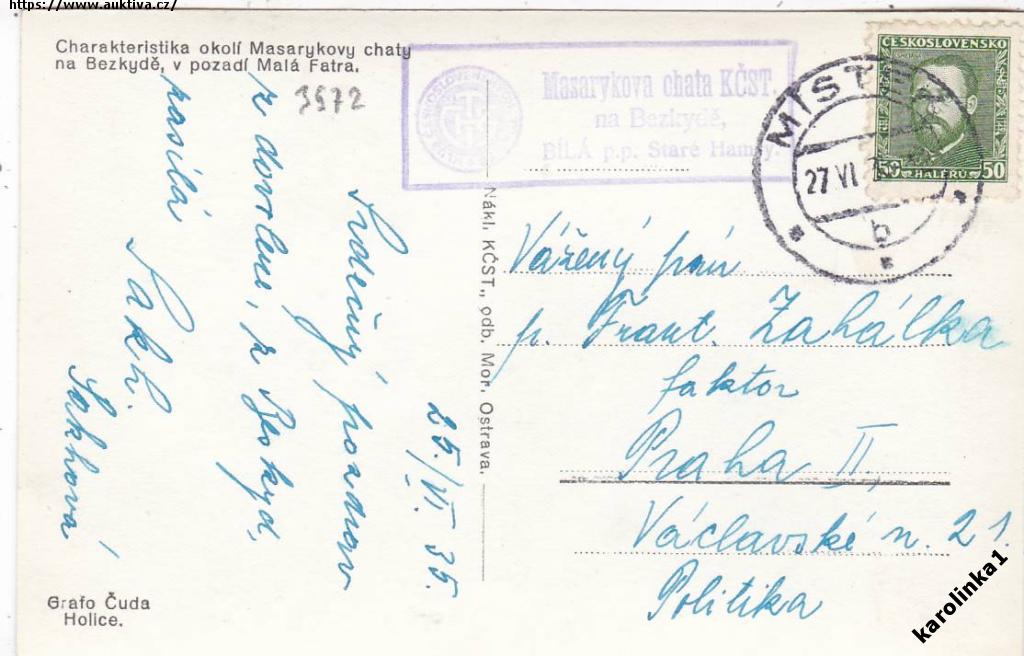 https://www.auktiva.cz/
Charakteristika okolí Masarykovy chaty
na Bezkydě, v pozadí Malá Fatra.
3972
Masarykova chata KČST.
na Bezkydě,
BÍLÁ p.p. Staré Hamry.
MÍSTEK
27 VI
b
ČESKOSLOVENSKO
50 HALÉŘŮ 50
25./VI. 35.
Srdečný pozdrav
z dovolené, z Beskyd,
zasílá
Sakhová
Nákl. KČST., odb. Mor. Ostrava.
Vážený pán
p. Frant. Zahálka
faktor
Praha II,
Václavské n. 21.
Politika
Grafo Čuda
Holice.
karolinka1